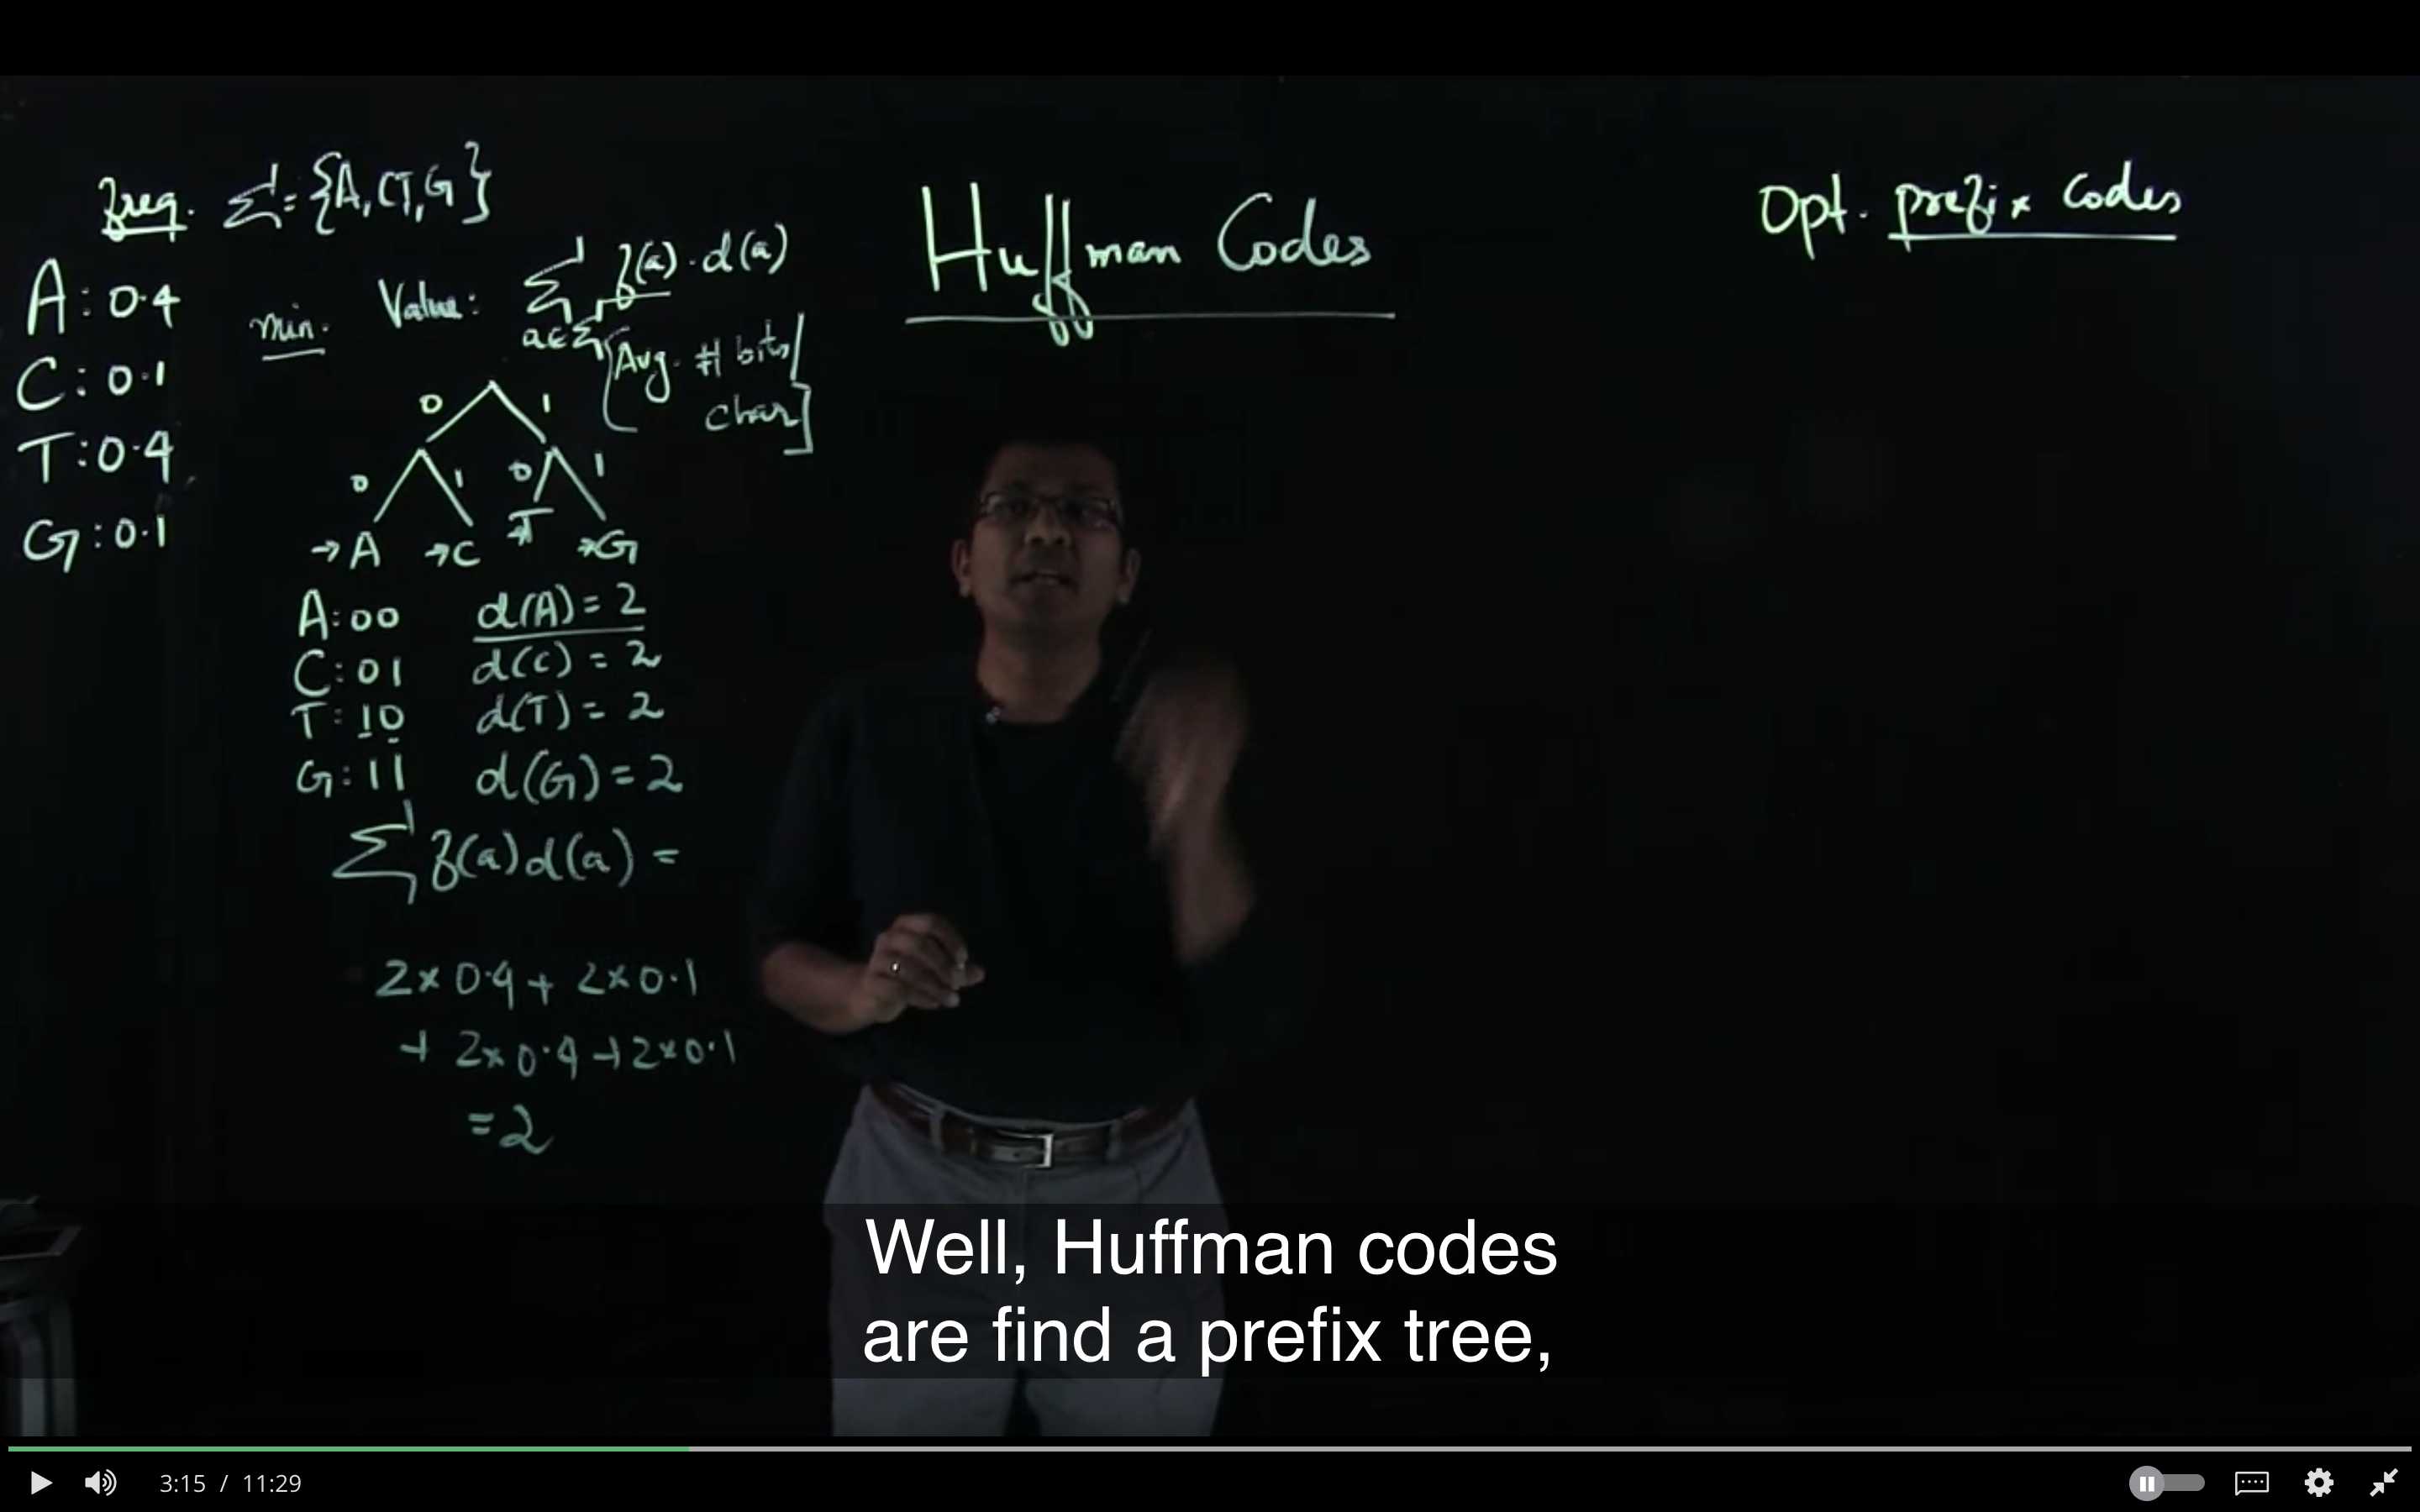 freq. Σ = {A, C, T, G}
A: 0.4
C: 0.1
T: 0.4
G: 0.1
min. Value: Σ f(a) · d(a)
a∈Σ
[Avg. # bits/
char]
0 1
0 1 0 1
→A →C →T →G
A: 00 d(A) = 2
C: 01 d(C) = 2
T: 10 d(T) = 2
G: 11 d(G) = 2
Σ f(a) d(a) =
2 × 0.4 + 2 × 0.1
+ 2 × 0.4 + 2 × 0.1
= 2
Huffman Codes
Opt. prefix codes
Well, Huffman codes
are find a prefix tree,
3:15 / 11:29